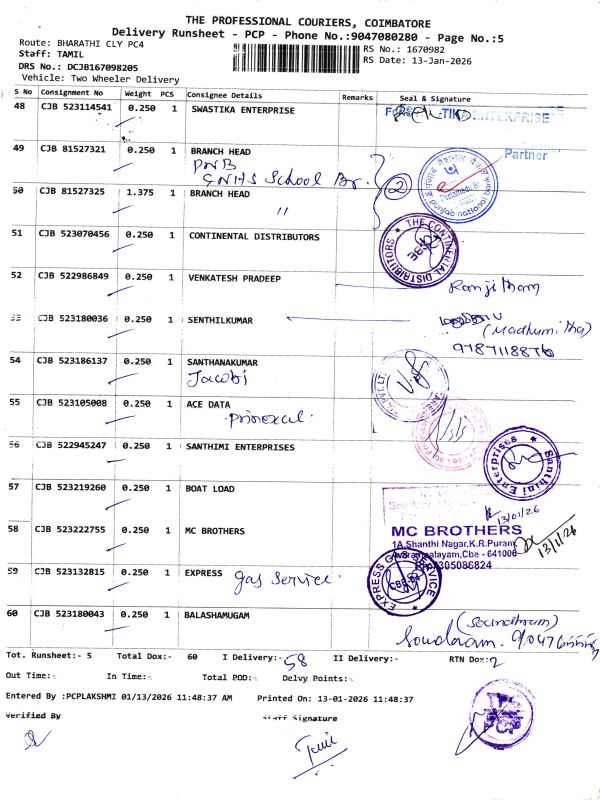 THE PROFESSIONAL COURIERS, COIMBATORE
Delivery Runsheet - PCP - Phone No.:9047080280 - Page No.:5
Route: BHARATHI CLY PC4
Staff: TAMIL
DRS No.: DCJB167098205
Vehicle: Two Wheeler Delivery
RS No.: 1670982
RS Date: 13-Jan-2026
S No Consignment No Weight PCS Consignee Details Remarks Seal & Signature
48 CJB 523114541 0.250 1 SWASTIKA ENTERPRISE
ENTERPRISE
Partner
49 CJB 81527321 0.250 1 BRANCH HEAD
PNB
GNHS School Br.
2
punjab national bank
50 CJB 81527325 1.375 1 BRANCH HEAD
"
51 CJB 523070456 0.250 1 CONTINENTAL DISTRIBUTORS
THE CONTINENTAL DISTRIBUTORS
52 CJB 522986849 0.250 1 VENKATESH PRADEEP
Ranjitham
53 CJB 523180036 0.250 1 SENTHILKUMAR
(Madhumitha)
9787118876
54 CJB 523186137 0.250 1 SANTHANAKUMAR
Jacobi
PVT. LT
55 CJB 523105008 0.250 1 ACE DATA
56 CJB 522945247 0.250 1 SANTHIMI ENTERPRISES
Santhini Enterprises
57 CJB 523219260 0.250 1 BOAT LOAD
13/01/26
58 CJB 523222755 0.250 1 MC BROTHERS
MC BROTHERS
1A,Shanthi Nagar,K.R.Puram
Cbe - 641006
305086824
13/1/26
59 CJB 523132815 0.250 1 EXPRESS
gas service.
EXPRESS GAS SERVICE
CBE
60 CJB 523180043 0.250 1 BALASHAMUGAM
(Soundhram)
Soudaram.
Tot. Runsheet:- 5 Total Dox:- 60 I Delivery:- 58 II Delivery:- RTN Dox:2
Out Time:- In Time:- Total POD:- Delvy Points:-
Entered By :PCPLAKSHMI 01/13/2026 11:48:37 AM Printed On: 13-01-2026 11:48:37
Verified By Staff Signature
Tamil